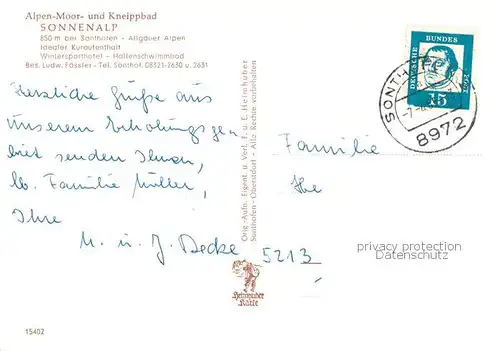 Alpen-Moor- und Kneippbad
SONNENALP
850 m bei Sonthofen - Allgäuer Alpen
Idealer Kuraufenthalt
Wintersporthotel - Hallenschwimmbad
Bes. Ludw. Fässler - Tel. Sonthof. 08321-2630 u. 2631
Herzliche Grüße aus
unserem Erholungsge-
biet senden Ihnen,
lb. Familie Müller,
Ihre
M. u. J. Decke
5213
Familie
Orig.-Aufn. Eigent. u. Verl. F. u. E. Heimhuber
Sonthofen-Oberstdorf - Alle Rechte vorbehalten
Heimhuber
Karte
DEUTSCHE
BUNDES
POST
15
SONTH
8972
privacy protection
Datenschutz
15402